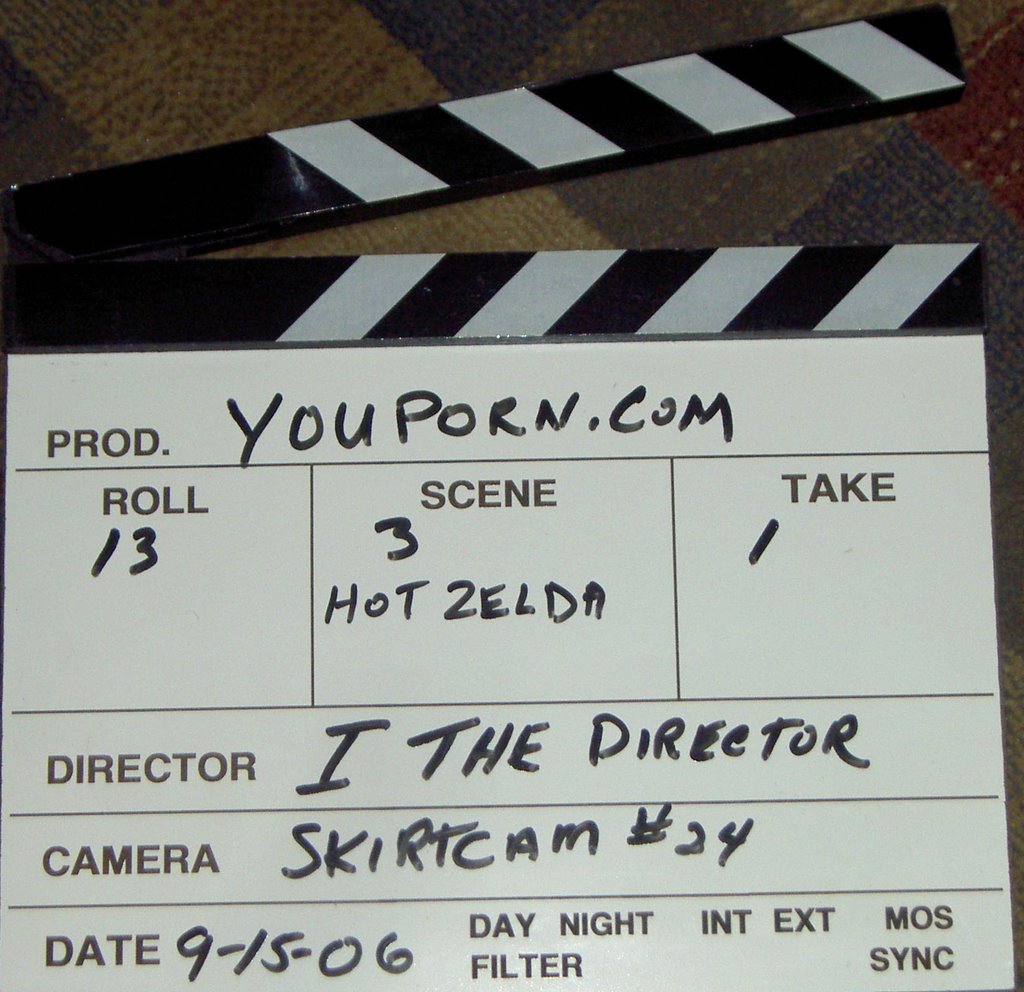 PROD. YOUPORN.COM
ROLL SCENE TAKE
13 3 1
HOT ZELDA
DIRECTOR I THE DIRECTOR
CAMERA SKIRTCAM #24
DAY NIGHT INT EXT MOS
DATE 9-15-06
FILTER SYNC